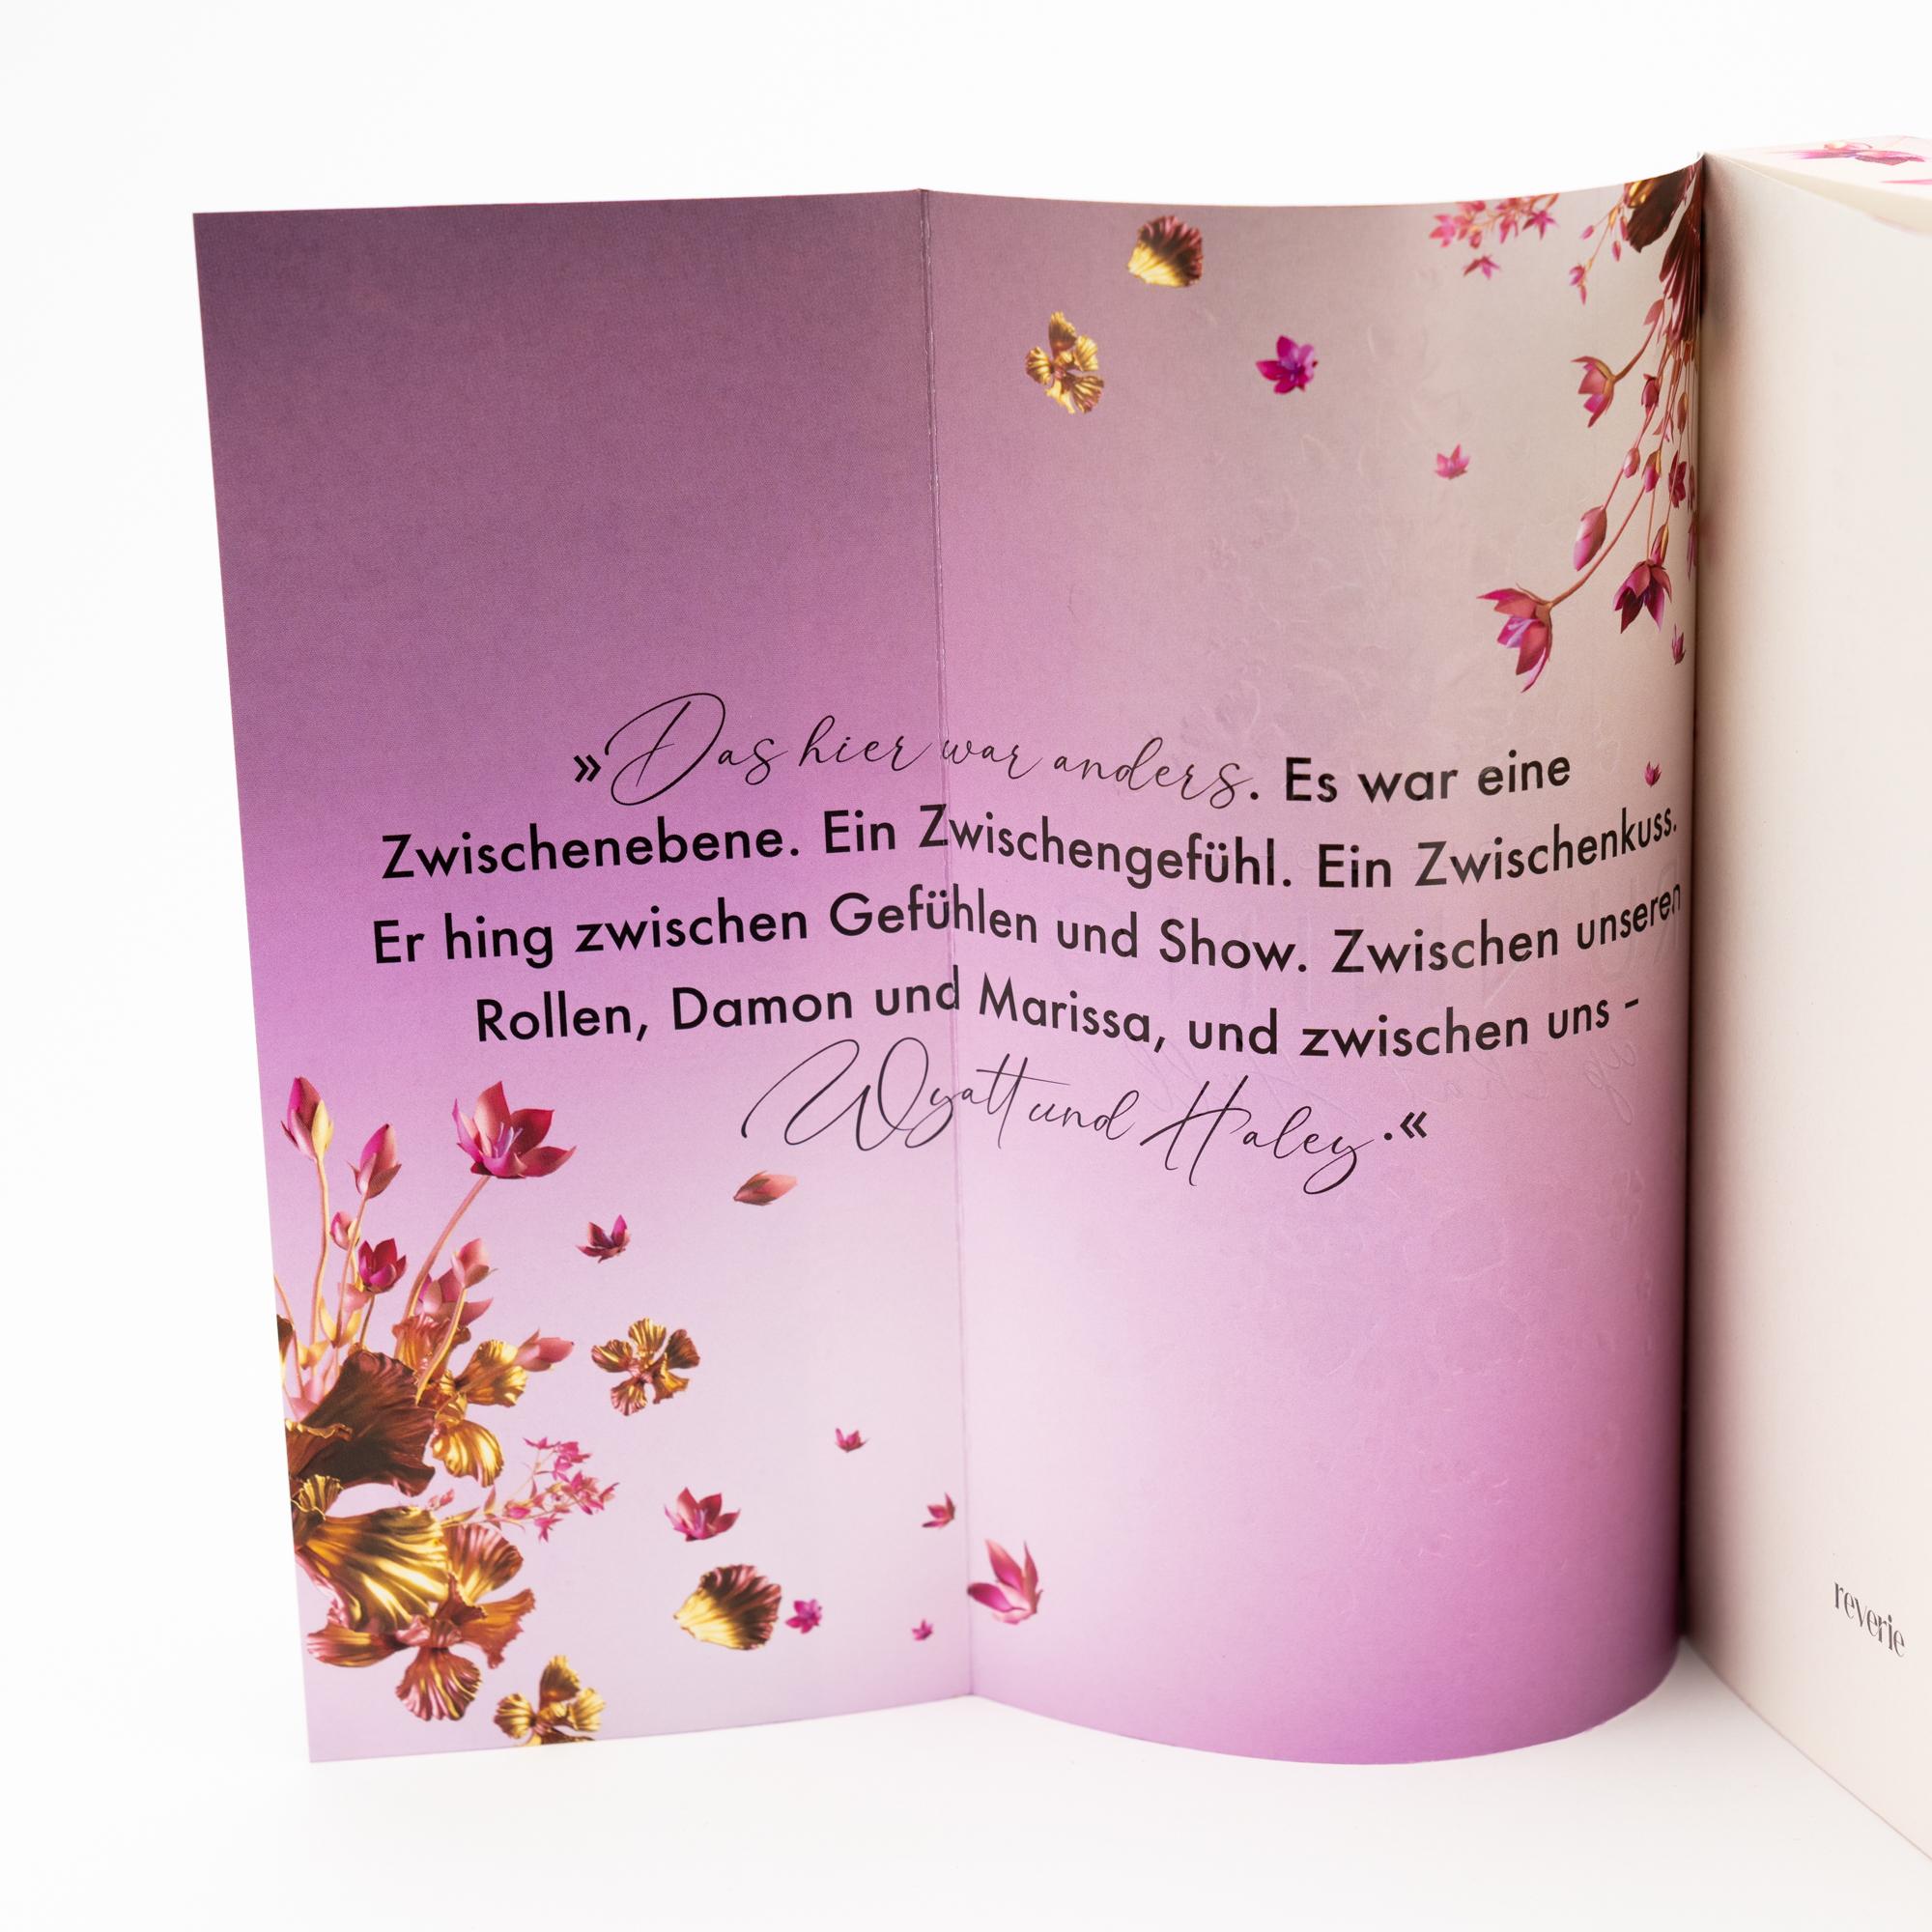 »Das hier war anders. Es war eine
Zwischenebene. Ein Zwischengefühl. Ein Zwischenkuss.
Er hing zwischen Gefühlen und Show. Zwischen unseren
Rollen, Damon und Marissa, und zwischen uns –
Wyatt und Haley.«
reverie